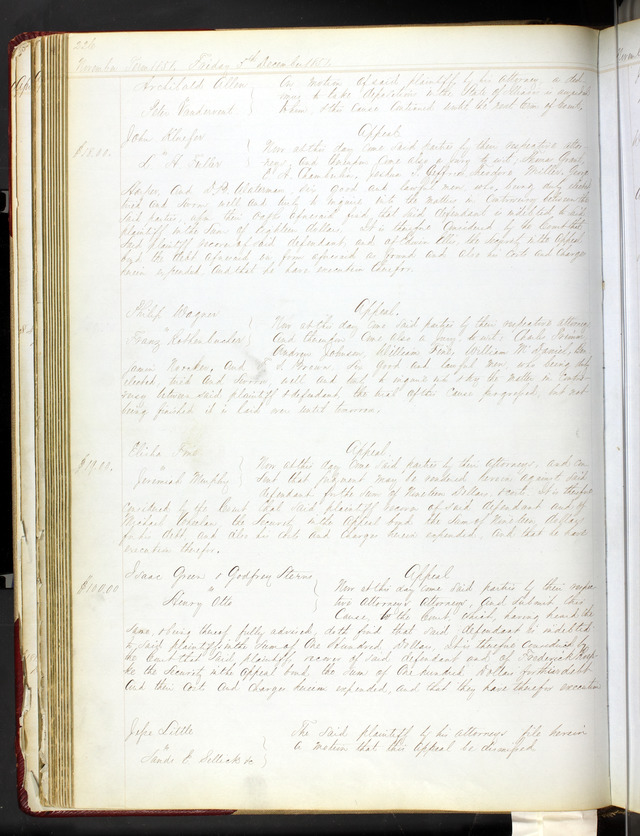 226
November Term 1851, Friday 5th December 1851
Archibald Allen
On motion of said plaintiff by his attorney, a
to take depositions in the State of is
this Cause continued until the next term of Court.
Peter Vandervort
John Kleefer
vs
H Fuller
Appeal.
$18.00.
Now at this day come said parties by their respective attor-
neys, and thereupon come also a jury to wit, Grant,
C. H. Chamberlin, Joshua Gifford, Miller, George
Harper, and Waterman, six good and lawful men, who, being duly elected
tried and sworn well and truly to inquire into the matter in controversy between the
said parties, upon their oaths aforesaid find, that said defendant is indebted to said
plaintiff in the sum of Eighteen dollars. It is therefore Considered by the Court that
said plaintiff recover of said defendant, and of the security in the Appeal
bond the debt aforesaid in form aforesaid as found and also his Costs and Charges
herein expended And that he have execution therefor.
Philip Wagner
vs
Franz
Appeal.
Now at this day Come said parties by their respective attorneys
And thereupon Come also a jury to wit: Charles
Andrew Johnson, William William McDaniel, Ben
jamin and Brown Six good and lawful men, who being duly
elected tried and sworn well and truly to inquire into & try the matter in contro-
versy between said plaintiff & defendant, the trial of this Cause progressed, but not
being finished it is laid over until tomorrow.
Elisha
vs
Jeremiah Murphy
Appeal.
$19.00.
Now at this day Come said parties by their attorneys, and con
sent that judgment may be rendered herein against said
defendant for the sum of Nineteen Dollars & costs. It is therefore
considered by the Court that said plaintiff recover of said defendant and of
Michael Whalen the security in the Appeal bond the sum of Nineteen dollars
for his debt, and also his Costs and Charges herein expended, and that he have
execution therefor.
Isaac Green & Godfrey Sterns
vs
Henry Otto
Appeal
$100.00
Now at this day come said parties by their respec
tive attorneys, And submit this
Cause, to the Court, which, having heard the
same, & being thereof fully advised, doth find that said defendant is indebted
to said plaintiffs in the sum of One Hundred Dollars. It is therefore considered by
the Court that said plaintiffs recover of said defendant and of Frederick
the Security in the Appeal bond, the sum of One hundred Dollars for their debt
And their Costs and Charges herein expended, and that they have therefor execution
Jesse Little
vs
Sands E. Sellick &c
The said plaintiff by his attorneys file herein
a motion that this Appeal be dismissed